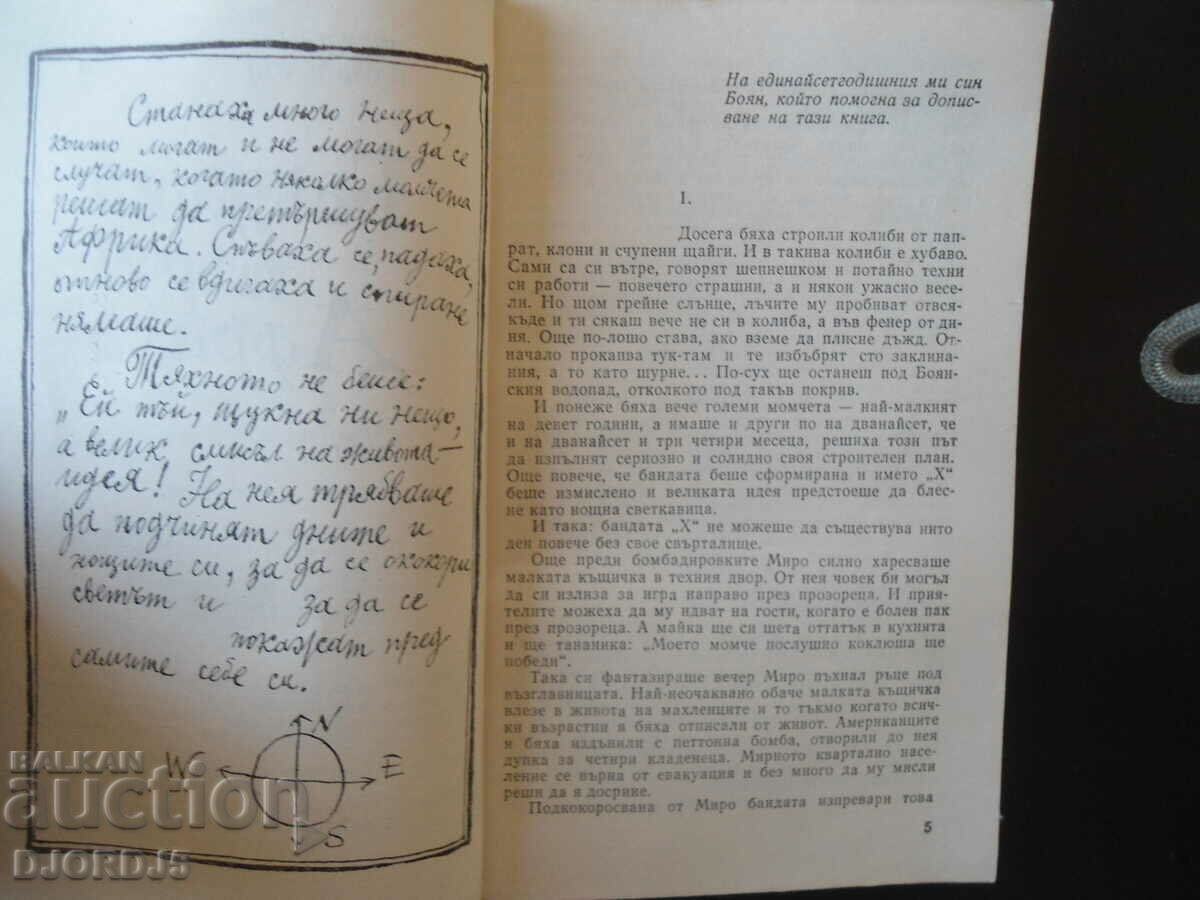 Станаха много неща,
които могат и не могат да се
случат, когато няколко момчета
решат да претършуват
Африка. Спъваха се, падаха,
отново се вдигаха и спиране
нямаше.
Тяхното не беше:
„Ей тъй, щукна ни нещо,
а велик смисъл на живота —
идея! На нея трябваше
да подчинят дните и
нощите си, за да се ококори
светът и за да се
покажат пред
самите себе си.
N
W E
S
На единайсетгодишния ми син
Боян, който помогна за допис-
ване на тази книга.
I.
Досега бяха строили колиби от пап-
рат, клони и счупени щайги. И в такива колиби е хубаво.
Сами са си вътре, говорят шепнешком и потайно техни
си работи — повечето страшни, а и някои ужасно весе-
ли. Но щом грейне слънце, лъчите му пробиват отвся-
къде и ти сякаш вече не си в колиба, а във фенер от ди-
ня. Още по-лошо става, ако вземе да плисне дъжд. От-
начало прокапва тук-там и те избъбрят сто заклина-
ния, а то като шурне... По-сух ще останеш под Боян-
ския водопад, отколкото под такъв покрив.
И понеже бяха вече големи момчета — най-малкият
на девет години, а имаше и други по на дванайсет, че
и на дванайсет и три четири месеца, решиха този път
да изпълнят сериозно и солидно своя строителен план.
Още повече, че бандата беше сформирана и името „Х“
беше измислено и великата идея предстоеше да блес-
не като нощна светкавица.
И така: бандата „Х“ не можеше да съществува нито
ден повече без свое свърталище.
Още преди бомбадировките Миро силно харесваше
малката къщичка в техния двор. От нея човек би могъл
да си излиза за игра направо през прозореца. И прия-
телите можеха да му идват на гости, когато е болен пак
през прозореца. А майка ще си шета оттатък в кухнята
и ще тананика: „Моето момче послушно коклюша ще
победи“.
Така си фантазираше вечер Миро пъхнал ръце под
възглавницата. Най-неочаквано обаче малката къщичка
влезе в живота на махленците и то тъкмо когато всич-
ки възрастни я бяха отписали от живот. Американците
я бяха издънили с петтонна бомба, отворили до нея
дупка за четири кладенеца. Мирното квартално насе-
ление се върна от евакуация и без много да му мисли
реши да я досрине.
Подкокоросвана от Миро бандата изпревари това
5
BALKAN
auction
DJORDJ5